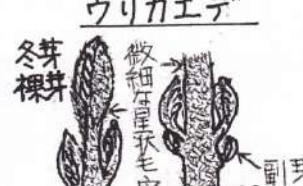 ウリカエデ
冬芽
裸芽
微細な星状毛密
副芽